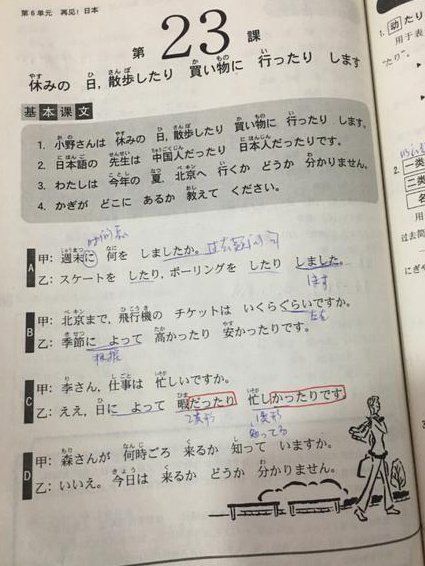 第6单元 再见！日本
第 23 课
休みの 日，散歩したり 買い物に 行ったり します
基本课文
1. 小野さんは 休みの 日，散歩したり 買い物に 行ったり します。
2. 日本語の 先生は 中国人だったり 日本人だったりです。
3. わたしは 今年の 夏，北京へ 行くか どうか 分かりません。
4. かぎが どこに あるか 教えて ください。
A
甲：週末に 何を しましたか。
乙：スケートを したり，ボーリングを したり しました。
します
B
甲：北京まで，飛行機の チケットは いくらぐらいですか。
左右
乙：季節に よって 高かったり 安かったりです。
根据
C
甲：李さん，仕事は 忙しいですか。
乙：ええ，日に よって 暇だったり 忙しかったりです。
知ってる
D
甲：森さんが 何時ごろ 来るか 知って いますか。
乙：いいえ。今日は 来るか どうか 分かりません。
1. 動 たり
用于表
"たり"。
2.
一类
二类
名
过去简
にぎや